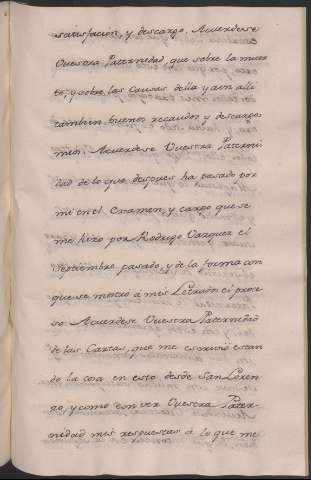 satisfacion, y descargo. Acuerdese
Vuestra Paternedad que sobre la muer
te, y sobre las causas della y aun alli
tambien buenos recaudos y descargos
mios. Acuerdese Vuestra Paterni
dad de lo que despues ha pasado por
mi en el Examen, y cargo que se
me hizo por Rodrigo Vazquez el
septiembre pasado, y de la forma con
que se mostró á mis Letrados el proce
so. Acuerdese Vuestra Paternedad
de las Cartas, que me escrivió estan
do la cosa en esto desde San Loren-
zo, y como con ver Vuestra Pater-
nedad mis respuestas á lo que me